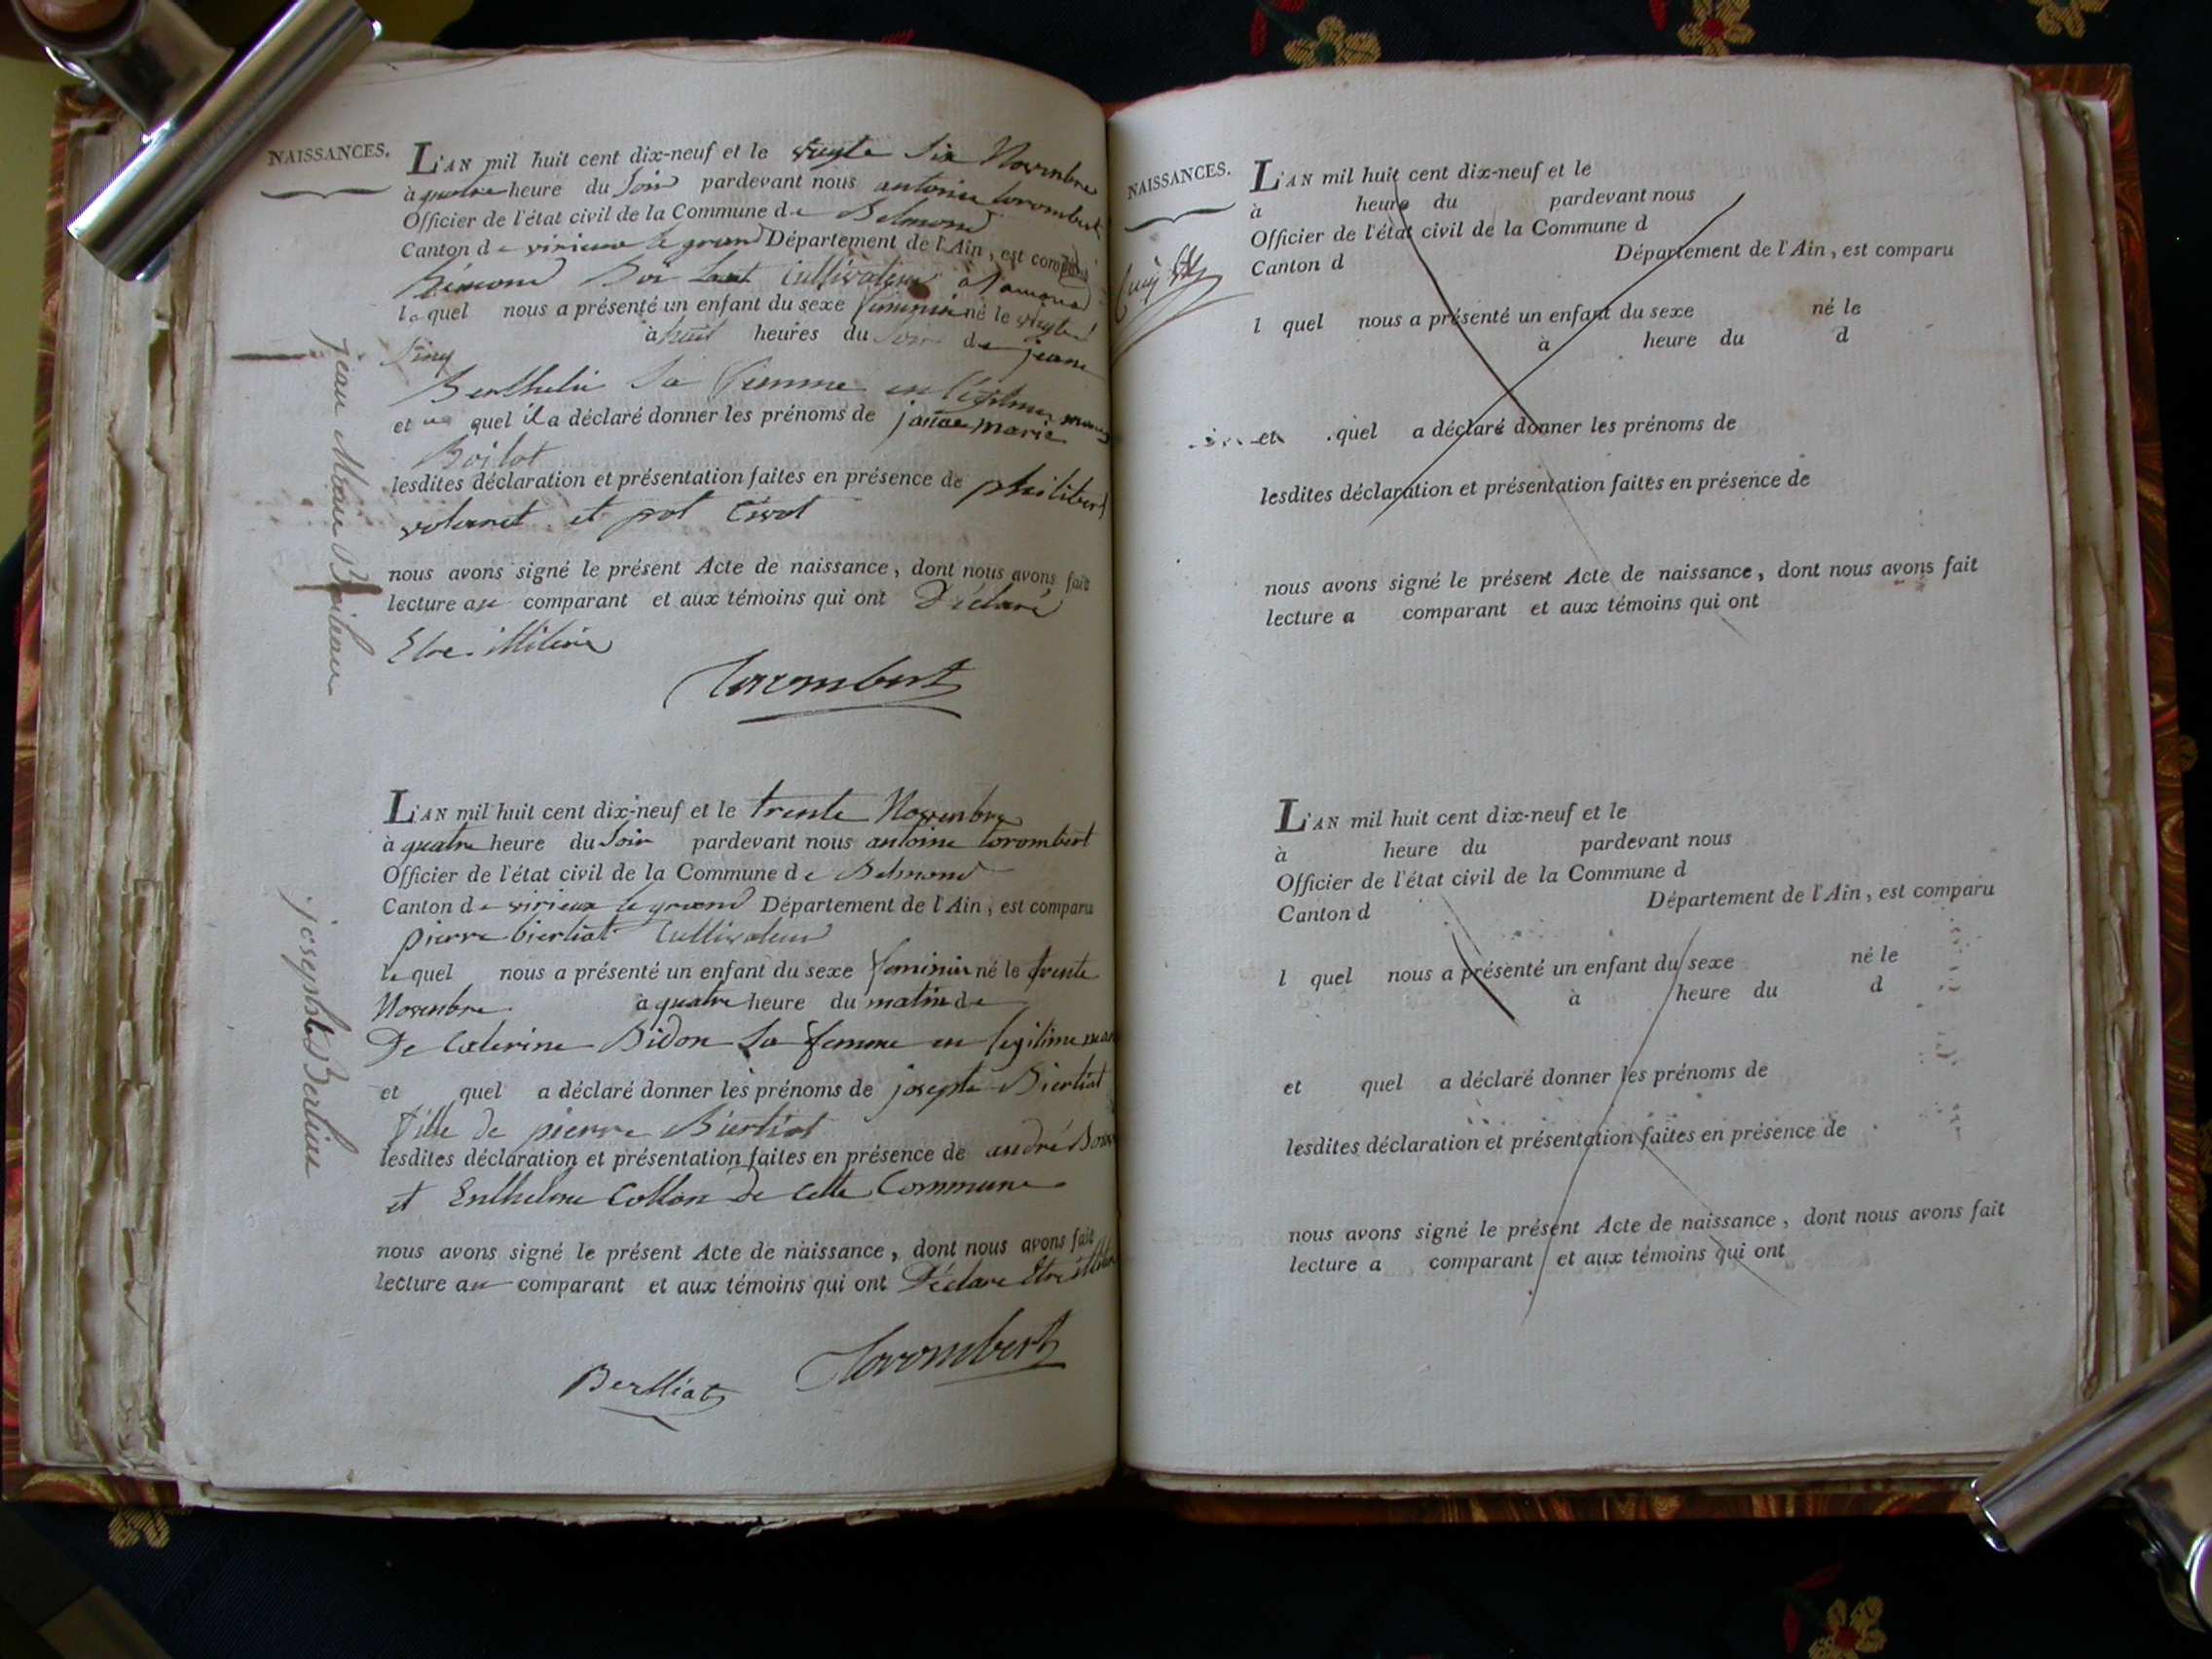 NAISSANCES.
L'AN mil huit cent dix-neuf et le vingte six Novembre
à quatre heure du soir pardevant nous antoine torombert
Officier de l'état civil de la Commune de Belmond
Canton de virieux le grand Département de l'Ain, est comparu
Simond Boi Lot Cultivateur à
lequel nous a présenté un enfant du sexe feminin né le vingte
sinq à huit heures du soir de jeane
Berthelie sa femme en légitime
et quel il a déclaré donner les prénoms de marie
Boilot
lesdites déclaration et présentation faites en présence de philibert
volarnet et pol
nous avons signé le présent Acte de naissance, dont nous avons fait
lecture au comparant et aux témoins qui ont Déclaré
Etre illitéré
Torombert
jean Marie Boileau
L'AN mil huit cent dix-neuf et le trente Novembre
à quatre heure du soir pardevant nous antoine torombert
Officier de l'état civil de la Commune de Belmond
Canton de virieux le grand Département de l'Ain, est comparu
pierre biertiat Cultivateur
lequel nous a présenté un enfant du sexe feminin né le trente
Novembre à quatre heure du matin de
De Caterine Bidon sa femme en legitime
et quel a déclaré donner les prénoms de josepte Biertiat
fille de pierre Biertiat
lesdites déclaration et présentation faites en présence de andré
et Enthelme Cotton de cette Commune
nous avons signé le présent Acte de naissance, dont nous avons fait
lecture au comparant et aux témoins qui ont Déclare Etre
Berlliat Torombert
josephte Berliat
NAISSANCES.
L'AN mil huit cent dix-neuf et le
à heure du pardevant nous
Officier de l'état civil de la Commune d
Canton d Département de l'Ain, est comparu
l quel nous a présenté un enfant du sexe né le
à heure du d
et quel a déclaré donner les prénoms de
lesdites déclaration et présentation faites en présence de
nous avons signé le présent Acte de naissance, dont nous avons fait
lecture a comparant et aux témoins qui ont
L'AN mil huit cent dix-neuf et le
à heure du pardevant nous
Officier de l'état civil de la Commune d
Canton d Département de l'Ain, est comparu
l quel nous a présenté un enfant du sexe né le
à heure du d
et quel a déclaré donner les prénoms de
lesdites déclaration et présentation faites en présence de
nous avons signé le présent Acte de naissance, dont nous avons fait
lecture a comparant et aux témoins qui ont